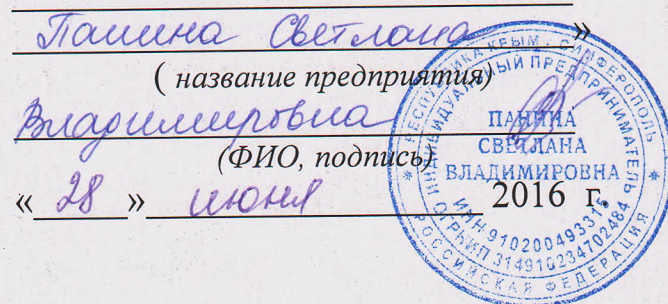 Панина Светлана »
( название предприятия)
Владимировна
(ФИО, подпись)
« 28 » июня 2016 г.
РЕСПУБЛИКА КРЫМ . СИМФЕРОПОЛЬ
* РОССИЙСКАЯ ФЕДЕРАЦИЯ *
ИНДИВИДУАЛЬНЫЙ ПРЕДПРИНИМАТЕЛЬ
ПАНИНА
СВЕТЛАНА
ВЛАДИМИРОВНА
ИНН 910200493315
ОГРНИП 314910234702484